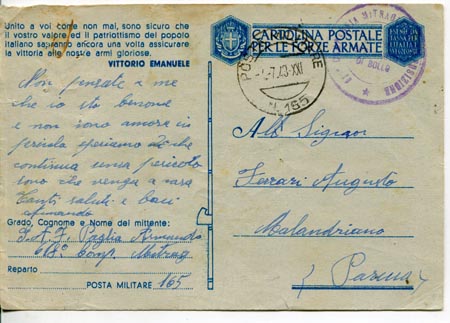 Unito a voi come non mai, sono sicuro che
il vostro valore ed il patriottismo del popolo
italiano sapranno ancora una volta assicurare
la vittoria alle nostre armi gloriose.
VITTORIO EMANUELE
Non pensate a me
che io sto benone
e non sono ancora in
pericolo speriamo che
continua senza pericolo
sono che venga a casa
Tanti saluti e baci
Armando
Grado, Cognome e Nome del mittente:
Paglia Armando
Comp. Mitrag
Reparto
POSTA MILITARE 165
CARTOLINA POSTALE
PER LE FORZE ARMATE
POSTA MILITARE
-7.43-XXI
N. 165
DI BOLLO
All Signor
Ferrari Augusto
Malandriano
(Parma)